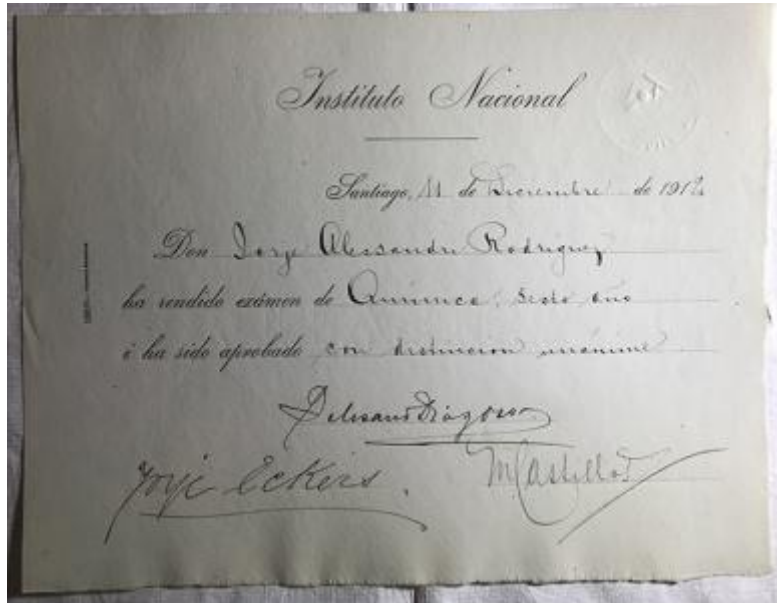 Instituto Nacional
Santiago, 11 de Diciembre de 1912
Don Jorje Alessandri Rodriguez
ha rendido exámen de Quimica, Sesto año
é ha sido aprobado con distincion unánime
Jorje Eckers.
M Castillo